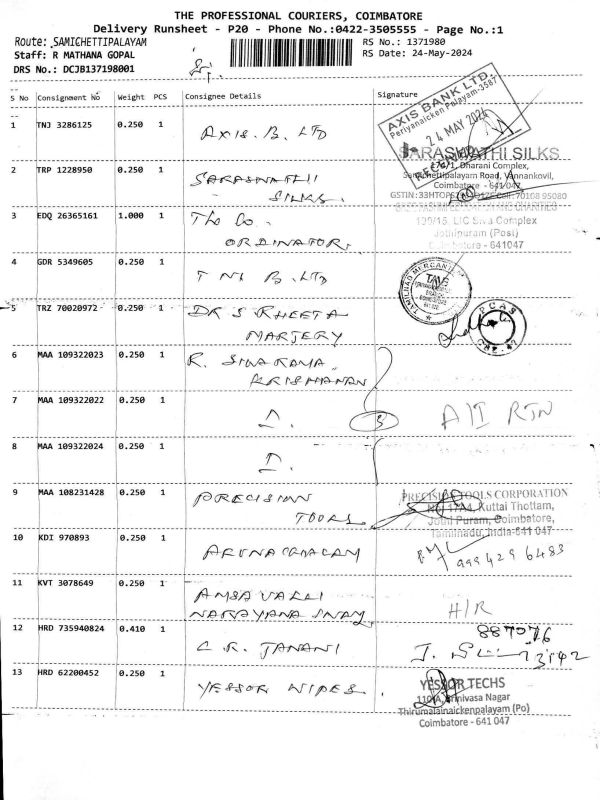 THE PROFESSIONAL COURIERS, COIMBATORE
Delivery Runsheet - P20 - Phone No.:0422-3505555 - Page No.:1
Route: SAMICHETTIPALAYAM RS No.: 1371980
Staff: R MATHANA GOPAL RS Date: 24-May-2024
DRS No.: DCJB137198001
S No Consignment No Weight PCS Consignee Details Signature
AXIS BANK LTD.
Periyanaicken Palayam-3587
24 MAY 2024
1 TNJ 3286125 0.250 1 AXIS. B. LTD
SARASWATHI SILKS
Dharani Complex,
2 TRP 1228950 0.250 1 SARASWATHI
Samichettipalayam Road, Vannankovil,
SILKS.
Coimbatore - 641 047
3 EDQ 26365161 1.000 1 The Co.
LIC Siva Complex
ORDINATOR.
Jothipuram (Post)
Coimbatore - 641047
4 GDR 5349605 0.250 1 T N B. LTD
TAMILNAD MERCANTILE
5 TRZ 70020972 0.250 1 DR S RHEETA
MARJERY
PCAS
CBE-47
6 MAA 109322023 0.250 1 R. SIVARAMA
KRISHANAN
7 MAA 109322022 0.250 1 D. 3 A/I RTN
8 MAA 109322024 0.250 1 D.
9 MAA 108231428 0.250 1 PRECISION
TOOLS.
PRECISION TOOLS CORPORATION
Kuttai Thottam,
Jothi Puram, Coimbatore,
Tamilnadu, India-641 047
10 KDI 970893 0.250 1 ARUNACHALAM
9994296483
11 KVT 3078649 0.250 1 AMSAVALLI
NARAYANA SWAY H/R
12 HRD 735940824 0.410 1 C. R. JANANI
13 HRD 62200452 0.250 1 YESSOR WIPES.
YESSOR TECHS
110/A, Srinivasa Nagar
Thirumalainaickenpalayam (Po)
Coimbatore - 641 047